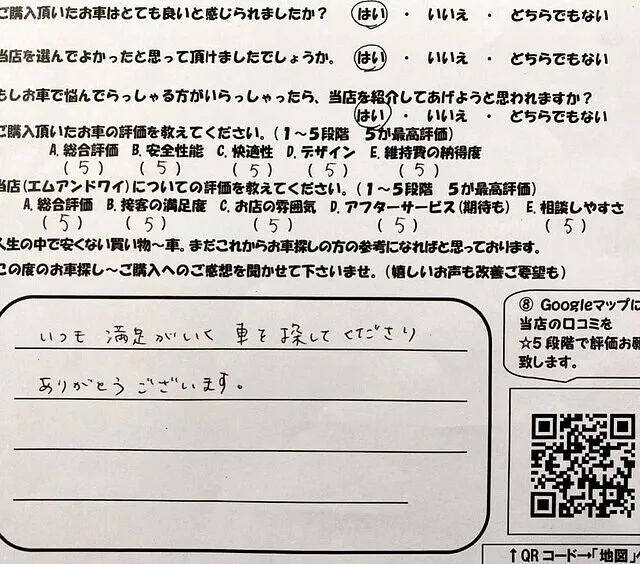 ご購入頂いたお車はとても良いと感じられましたか？ はい ・ いいえ ・ どちらでもない
当店を選んでよかったと思って頂けましたでしょうか。 はい ・ いいえ ・ どちらでもない
もしお車で悩んでらっしゃる方がいらっしゃったら、当店を紹介してあげようと思われますか？
はい ・ いいえ ・ どちらでもない
ご購入頂いたお車の評価を教えてください。(1～5段階 5が最高評価)
A.総合評価 B.安全性能 C.快適性 D.デザイン E.維持費の納得度
(5) (5) (5) (5) (5)
当店(エムアンドワイ)についての評価を教えてください。(1～5段階 5が最高評価)
A.総合評価 B.接客の満足度 C.お店の雰囲気 D.アフターサービス(期待も) E.相談しやすさ
(5) (5) (5) (5) (5)
人生の中で安くない買い物～車。まだこれからお車探しの方の参考になればと思っております。
この度のお車探し～ご購入へのご感想を聞かせて下さいませ。(嬉しいお声も改善ご要望も)
いつも 満足がいく 車を 探して くださり
ありがとう ございます。
⑧ Googleマップに
当店の口コミを
☆5段階で評価お願
致します。
↑QRコード→「地図」